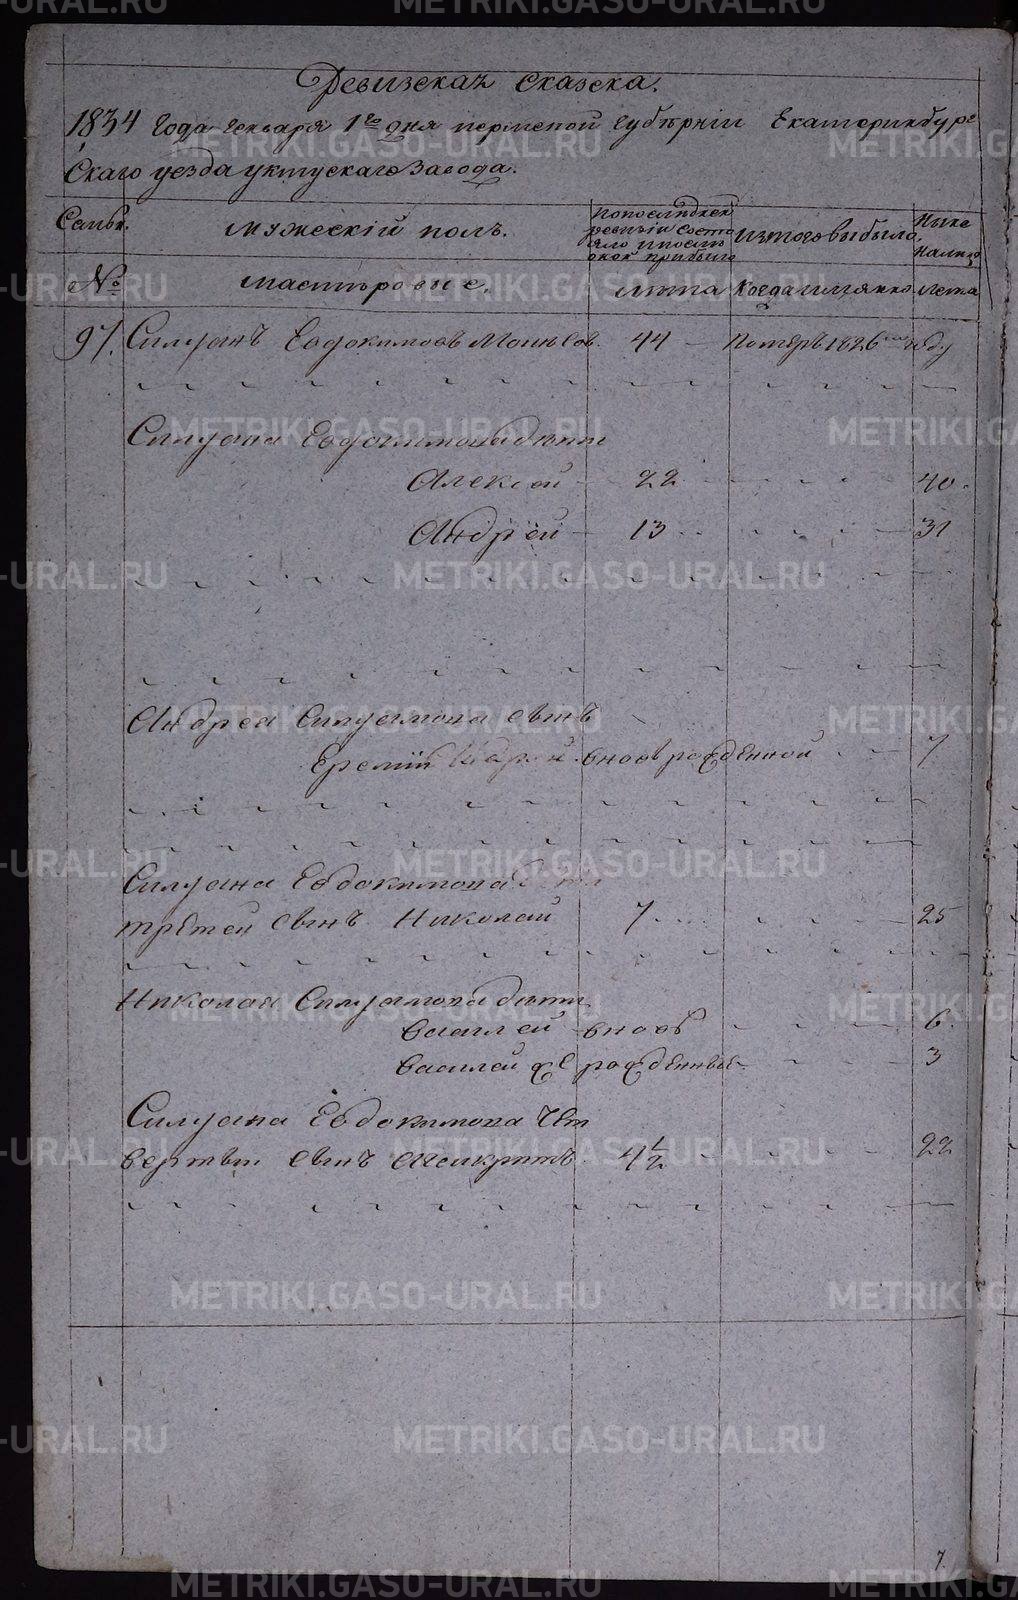 Ревизская сказска.
1834 года генваря 1го дня пермской губѣрніи Екатеринбург
Скаго уезда уктускаго завода.
Семьи.
мужескій полъ.
Попоследней
ревизіи состо
яло ипосли
оной прибыло
изтого выбыло
Ныне
налицо
№
мастѣровые.
лѣта
Когда имянно
лета
97. Силуанъ Евдокимовъ 44 Помѣръ 1826 году
Силуана Евдокимова дѣти
Алексей 22 40.
Андрей 13 31
Андрея Силуанова сынъ
Еремій вновь рожденной 7
Силуана Евдокимова
трѣтей сынъ Николай 7 25
Николая Силуанова дѣти
Василей вновь 6.
Василей же рожденные 3
Силуана Евдокимова Чет
вертый сынъ 4 1/2 22
7.
METRIKI.GASO-URAL.RU